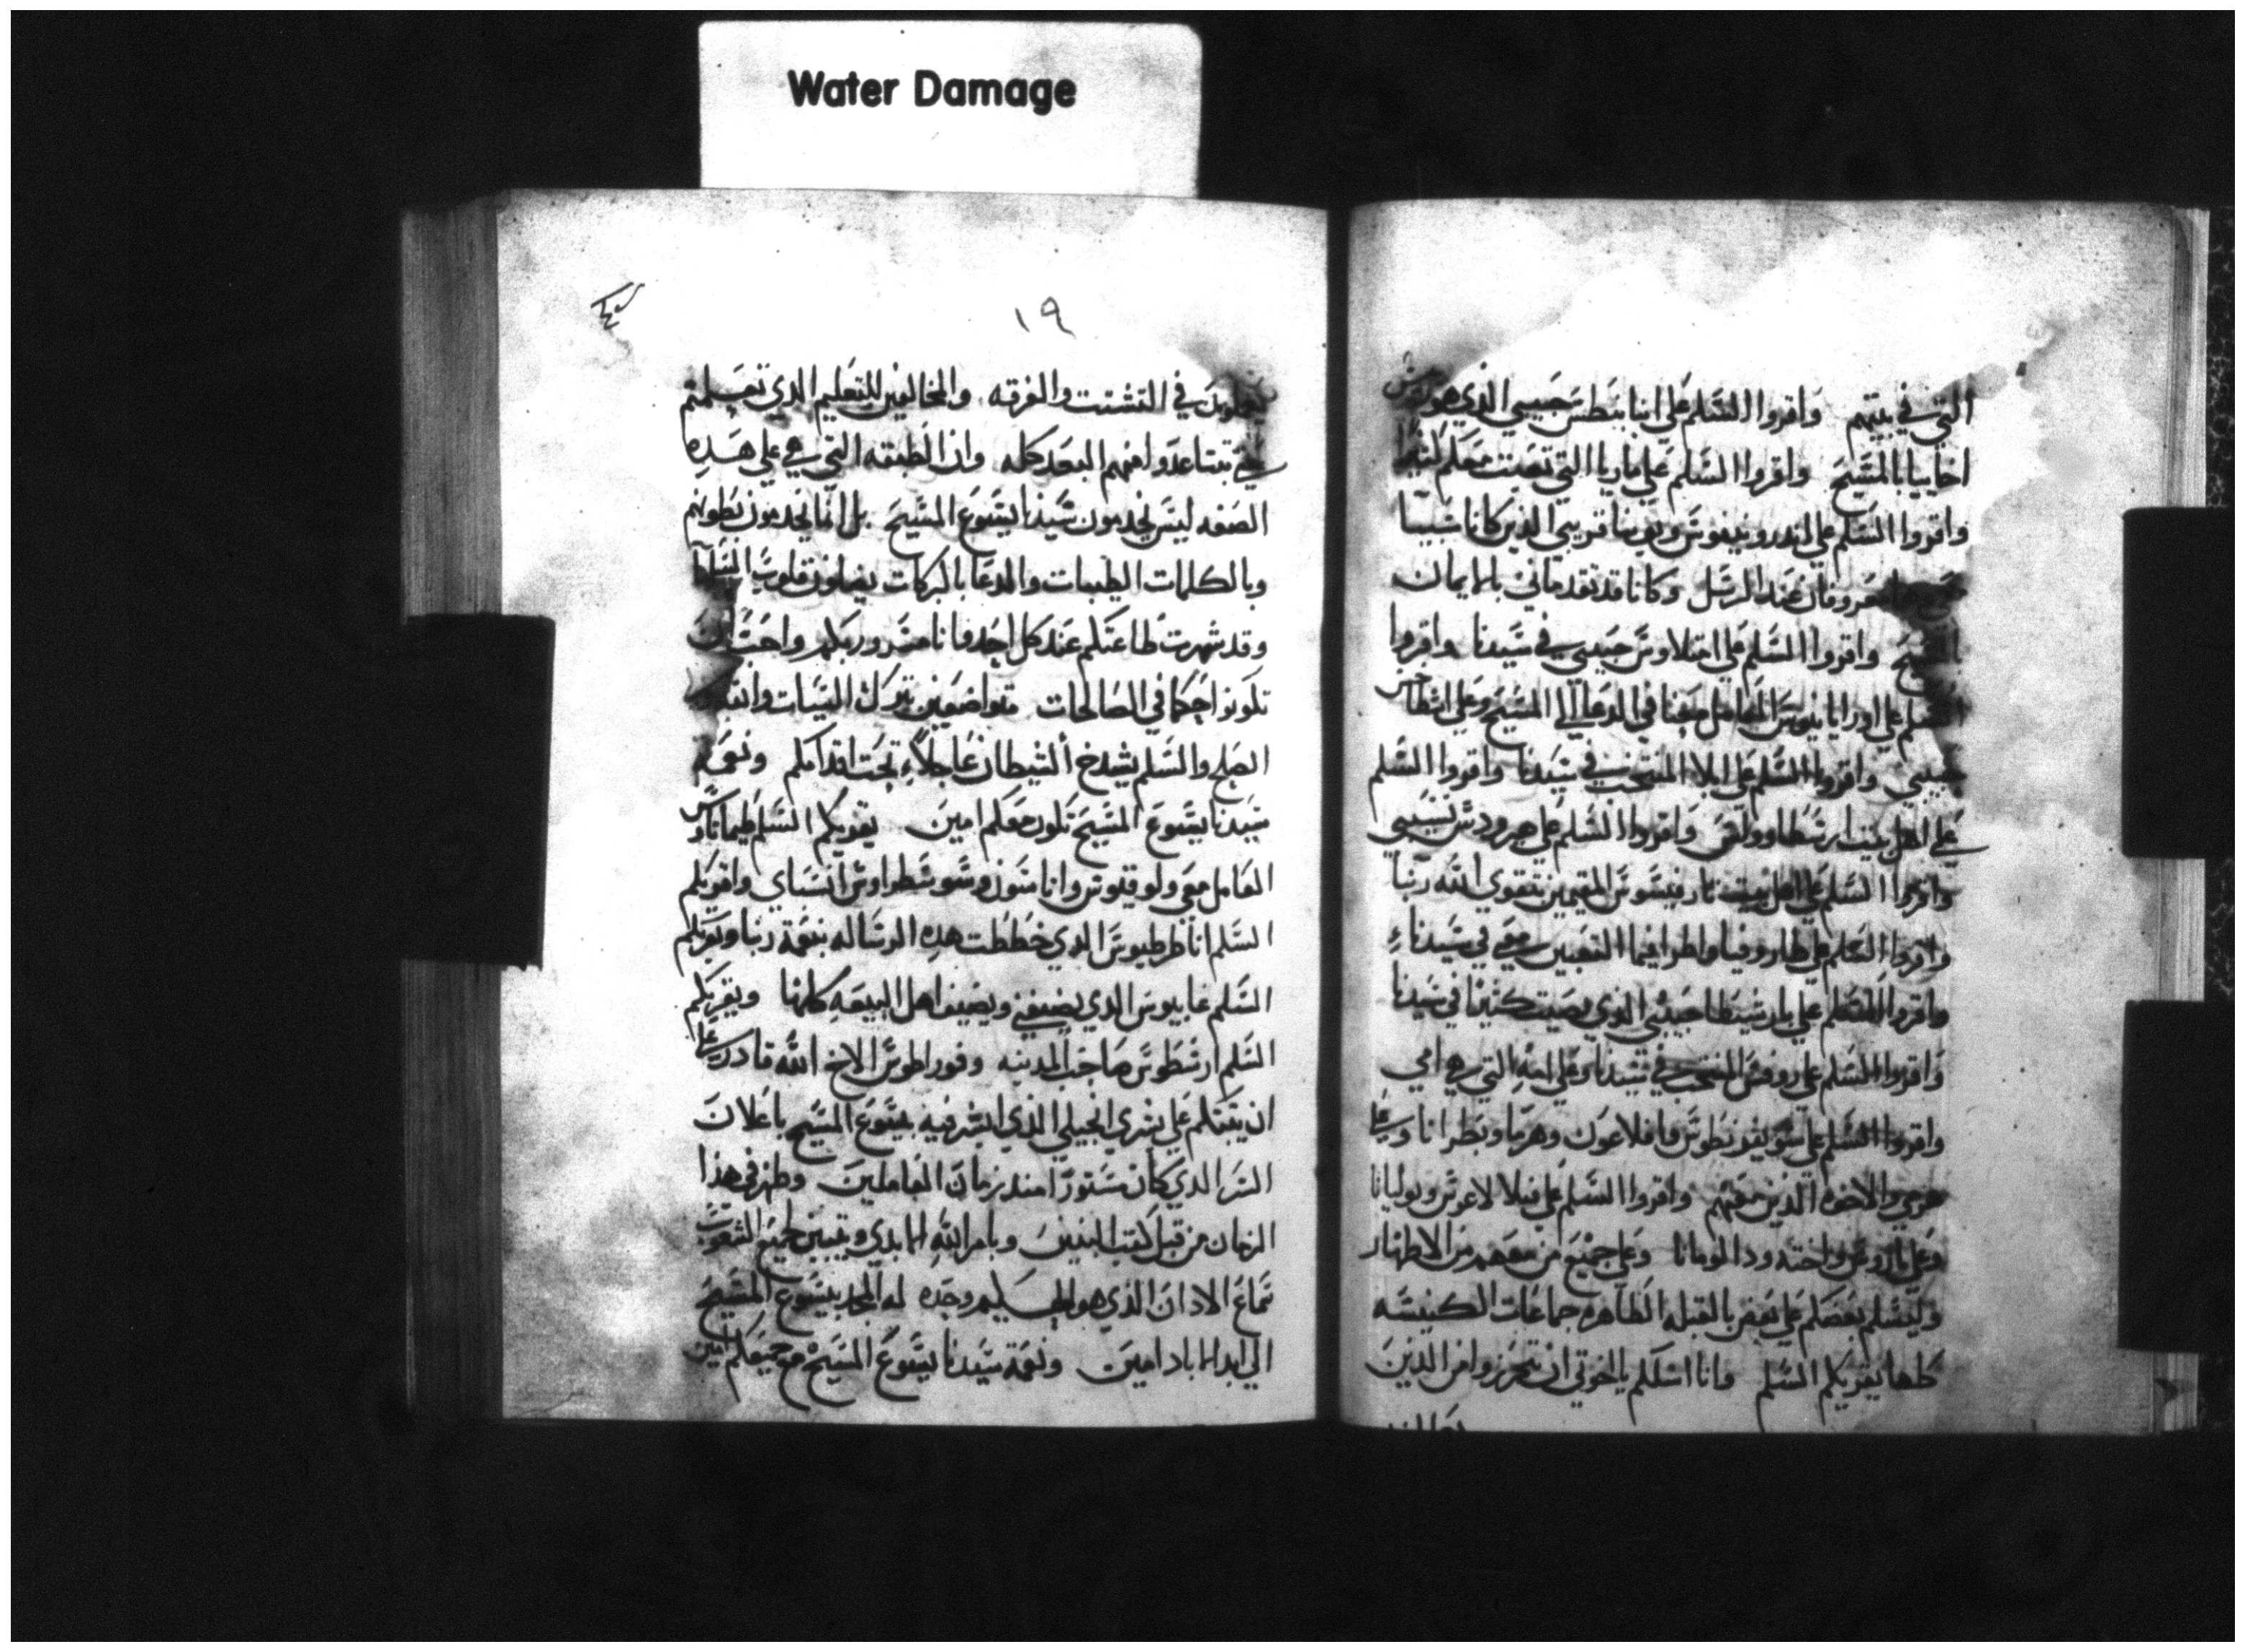 Water Damage
التي في بيتهم واقروا السلم علي ابنا بنطس حبيبي الذي هو
اخاييا بالمسيح واقروا السلم علي ماريا التي تعبت معكم كثيرا
واقروا السلم علي اندرونيقوس ويونيا قريبي الذين كانا سبيا
معي معروفان عند الرسل وكانا قد تقدماني بالايمان
بالمسيح واقروا السلم علي امتلاوس حبيبي في سيدنا واقروا
السلم علي اوربانيوس العامل معنا في الدعا الي المسيح وعلي اسطاخس
حبيبي واقروا السلم علي ابلا المنتخب في سيدنا واقروا السلم
علي اهل بيت ارسطاوولس واقروا السلم علي هيرودس نسيبي
واقروا السلم علي اهل بيت نارقيسوس المقيمين بتقوي الله ربنا
واقروا السلم علي طاروفينا واطرافيسا التعبين معي في سيدنا
واقروا السلم علي بارسيطا حبيبتي الذي نصبت كثيرا في سيدنا
واقروا السلم علي روفس المنتخب في سيدنا وعلي امه التي هي امي
واقروا السلم علي سونقريطوس وافلاعون وهرما وبطرانا وعلي
هرمي والاخوه الذين معهم واقروا السلم علي فيلالاغوس ويوليانا
وعلي ناروس واخته والومانا وعلي جميع من معهم من الاطهار
وليسلم بعضكم علي بعض بالقبله الطاهره جماعات الكنيسه
كلها يقريكم السلم وانا اسلكم يا اخوتي ان تحرزوا من الذين
١٩
يعملون في التشتت والفرقه والمخالفين للتعليم الدي تعلمتم
حتي تتباعدوا منهم البعد كله وان الطبقه التي هي علي هده
الصفه ليس يخدمون سيدنا يسوع المسيح بل انما يخدمون بطونهم
وبالكلمات الطيبات والدعا بالبركات يضلون قلوب السلما
وقد شهرت طاعتكم عند كل احد فانا مسرور بكم واحب ان
تكونوا احكما في الصالحات متواضعين بترك السيات والله
الصلح والسلم يشدخ الشيطان عاجلاً تحت اقدامكم ونعمه
سيدنا يسوع المسيح تكون معكم امين يقريكم السلم طيماتاوس
العامل معي ولوقيوس واناسون وسوسطراوس انسباي واقريكم
السلم انا طرطيوس الدي خططت هده الرساله بنعمة ربنا ويقريكم
السلم غاييوس الدي يضيفني ويضيف اهل البيعه كلها ويقريكم
السلم ارسطوس صاحب المدينه وقوراطوس الاخ الله قادر علي
ان يثبتكم علي بشري انجيلي الذي ابشر فيه بيسوع المسيح باعلان
السر الدي كان مستورًا مند زمان العاملين وظهر في هذا
الزمان من قبل كتب النبيين وبامر الله الابدي وتبين لجميع الشعوب
سماع الادان الذي هو الحكيم وحده له المجد بيسوع المسيح
الي ابد الاباد امين ونعمة سيدنا يسوع المسيح مع جميعكم امين